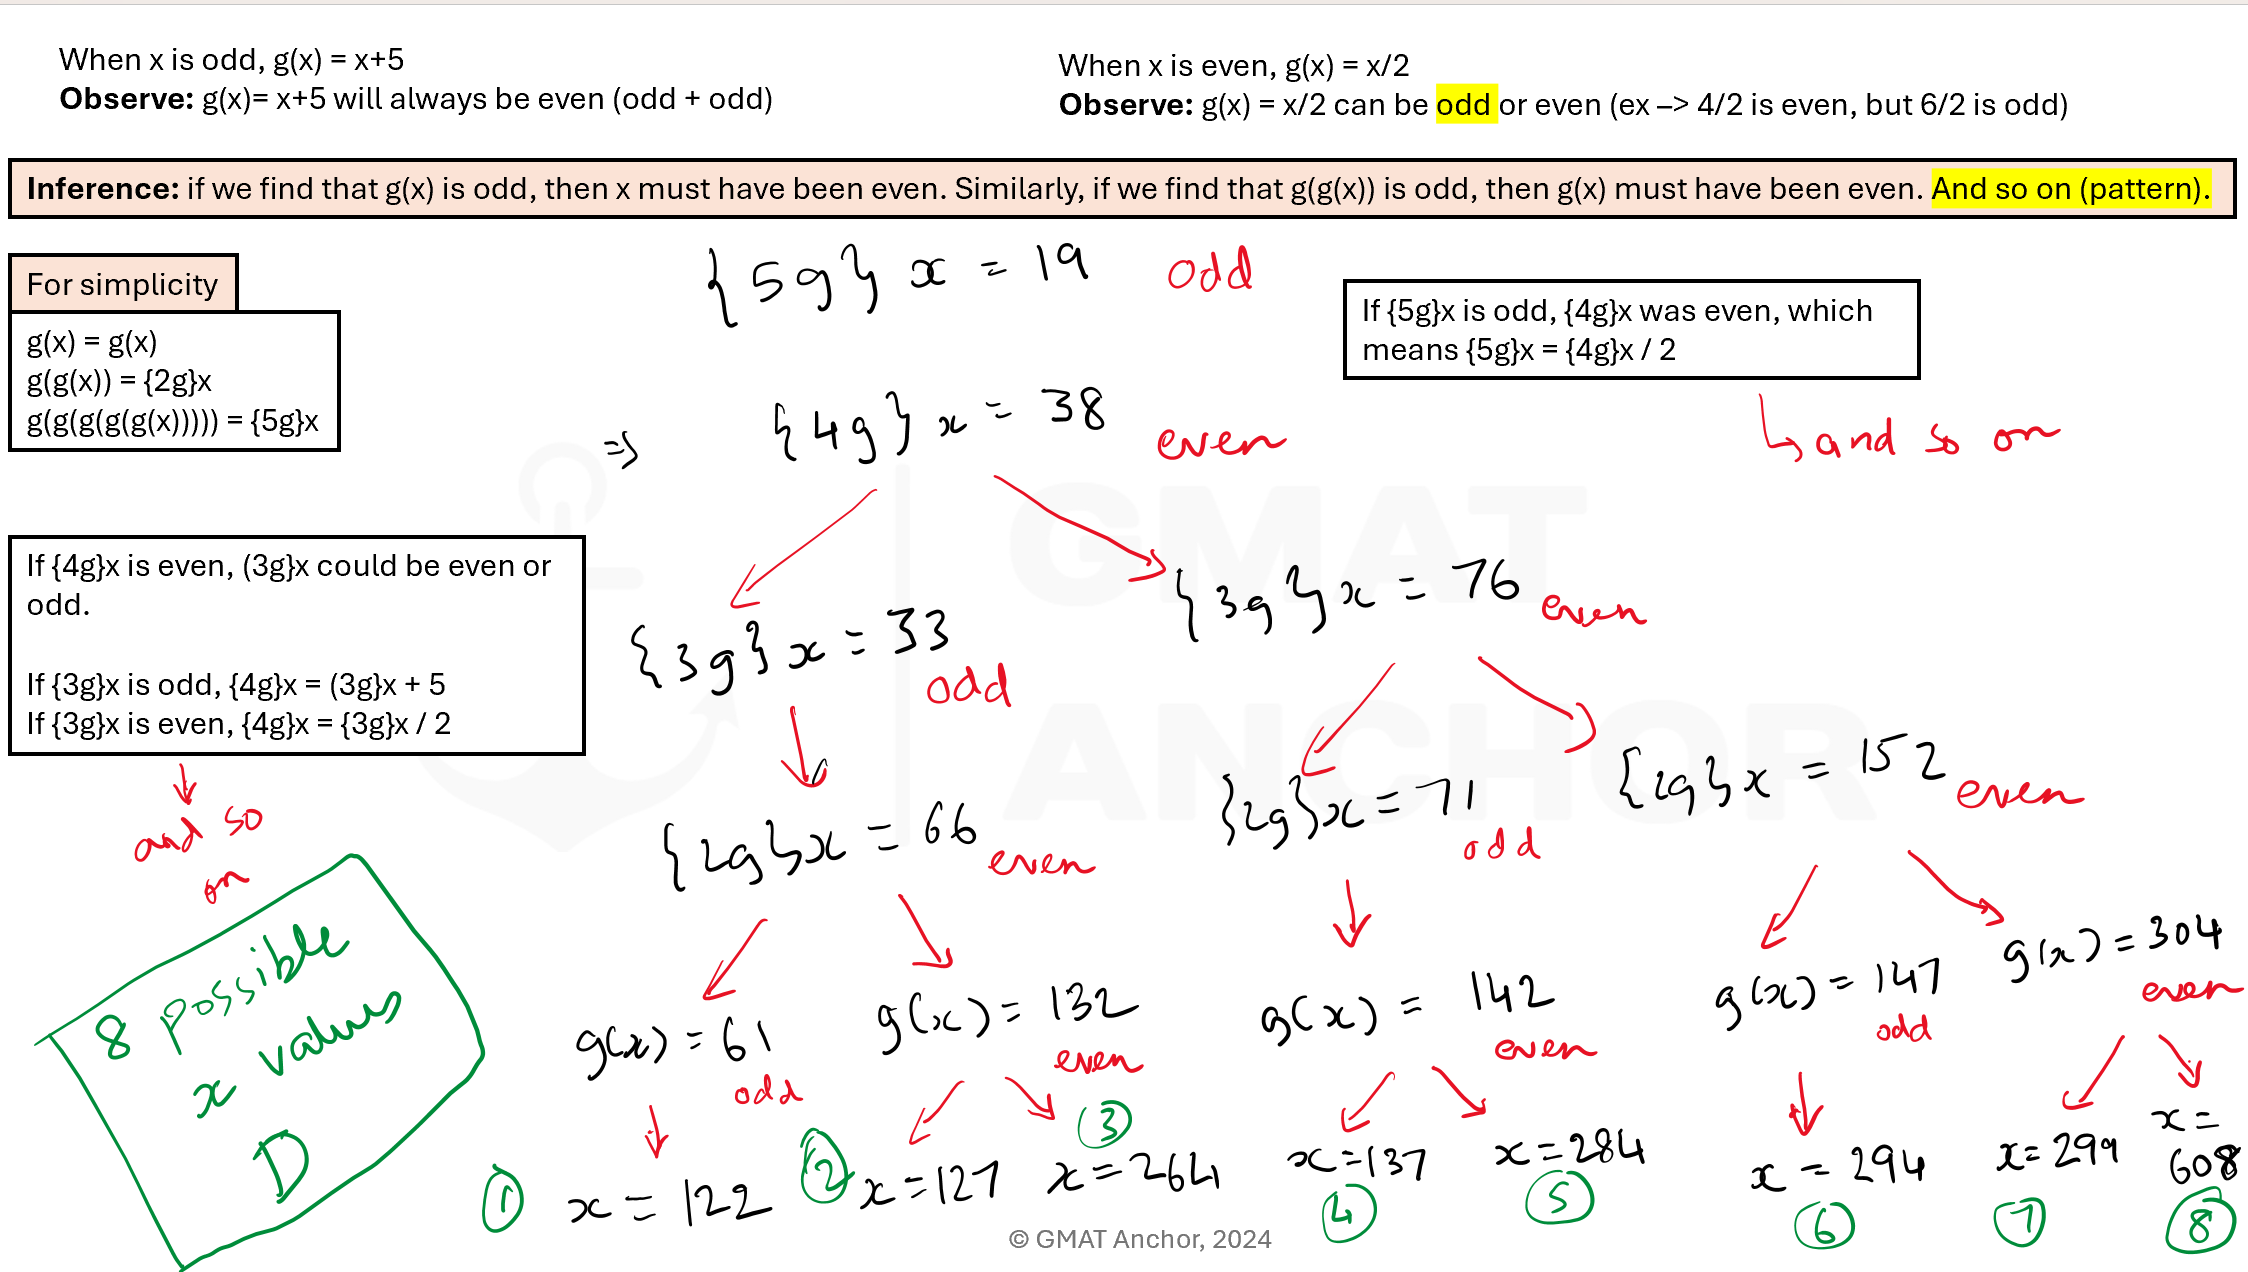 When x is odd, g(x) = x+5
Observe: g(x)= x+5 will always be even (odd + odd)
When x is even, g(x) = x/2
Observe: g(x) = x/2 can be odd or even (ex –> 4/2 is even, but 6/2 is odd)
Inference: if we find that g(x) is odd, then x must have been even. Similarly, if we find that g(g(x)) is odd, then g(x) must have been even. And so on (pattern).
For simplicity
g(x) = g(x)
g(g(x)) = {2g}x
g(g(g(g(g(x))))) = {5g}x
{5g} x = 19 odd
If {5g}x is odd, {4g}x was even, which
means {5g}x = {4g}x / 2
and so on
=> {4g} x = 38 even
If {4g}x is even, (3g}x could be even or
odd.
If {3g}x is odd, {4g}x = (3g}x + 5
If {3g}x is even, {4g}x = {3g}x / 2
and so
on
{3g} x = 33 odd
{3g} x = 76 even
{2g} x = 66 even
{2g} x = 71 odd
{2g} x = 152 even
g(x) = 61 odd
g(x) = 132 even
g(x) = 142 even
g(x) = 147 odd
g(x) = 304 even
① x = 122
② x = 127
③ x = 264
④ x = 137
⑤ x = 284
⑥ x = 294
⑦ x = 299
⑧ x = 608
8 possible
x values
D
GMAT
ANCHOR
© GMAT Anchor, 2024